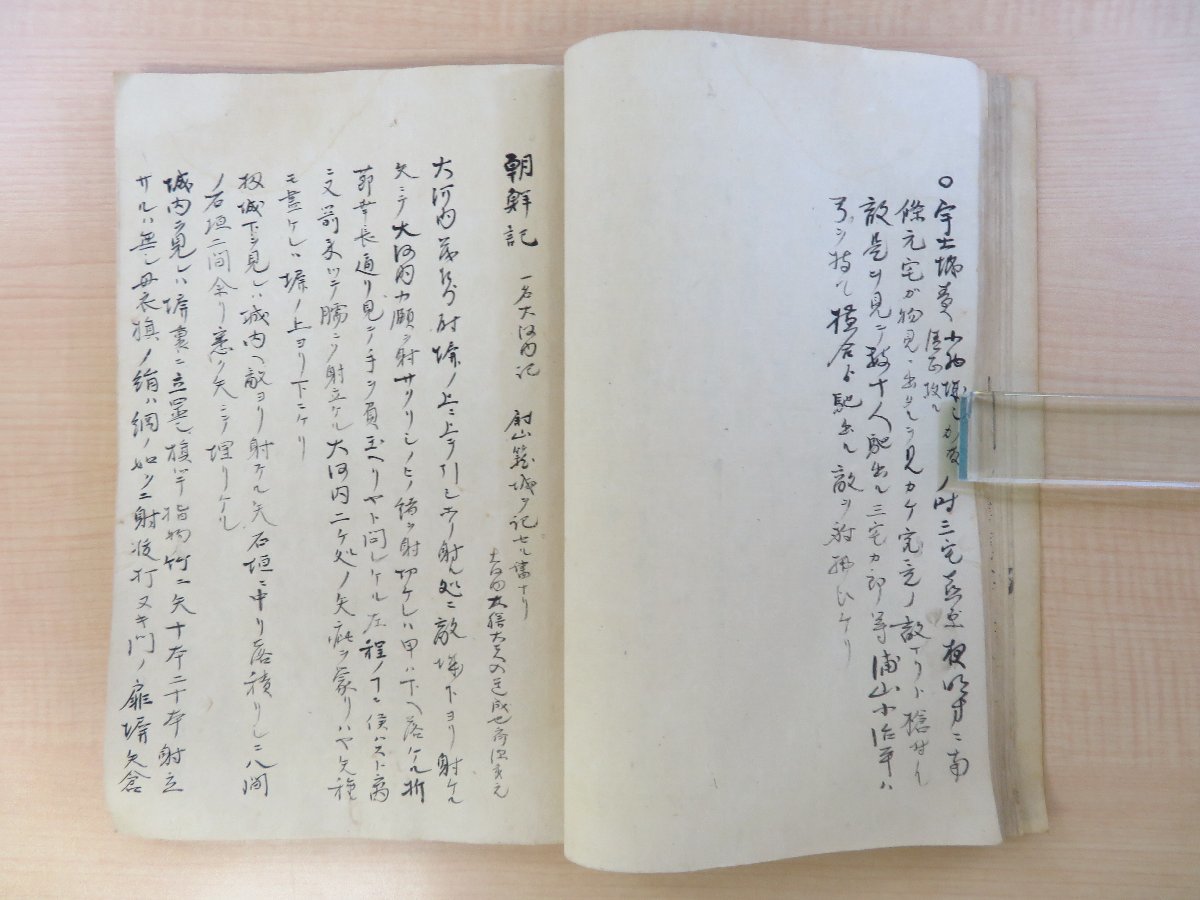 ○宇土城責 小西城しろ ノ時三宅 夜明方ニ南
清正攻ル
條元宅ガ物見ニ出 ヲ見カケ究竟ノ敵ナリト槍
敵是ヲ見テ数十人馳出ル三宅カ郎等浦山小治平ハ
弓ヲ持テ横合ヨリ馳出ル敵ヲ射拂ヒケリ
朝鮮記 一名大河内記 蔚山籠城ヲ記セル書ナリ
大河内 大膳大夫
大河内茂左衛門尉塀ノ上ニ上テ引シホリ射ル処ニ敵塀下ヨリ射ケル
矢ニテ大河内カ頤ヲ射サクリシノヒノ緒ヲ射切ケレハ甲ハ下ヘ落ケル折
節幸長通り見テ手ヲ負玉ヘリヤト問レケル左程ノ 候ハスト高
ニ又箭来ツテ臑ニ射立ケル大河内二ケ処ノ矢疵ヲ蒙リハヤ矢種
モ盡ケレハ塀ノ上ヨリ下ニケリ
扨城下ヲ見レハ城内ヘ敵ヨリ射ケル矢石垣ニ中リ落積リしニ八間
ノ石垣二間余リ悉ク矢ニテ埋リケル
城内ヲ見レハ塀裏ニ立置シ旗竿指物竹ニ矢十本二十本射立
サルハ無シ母衣旗ノ絹ハ網ノ如クニ射破打ヌキ門ノ扉塀矢倉